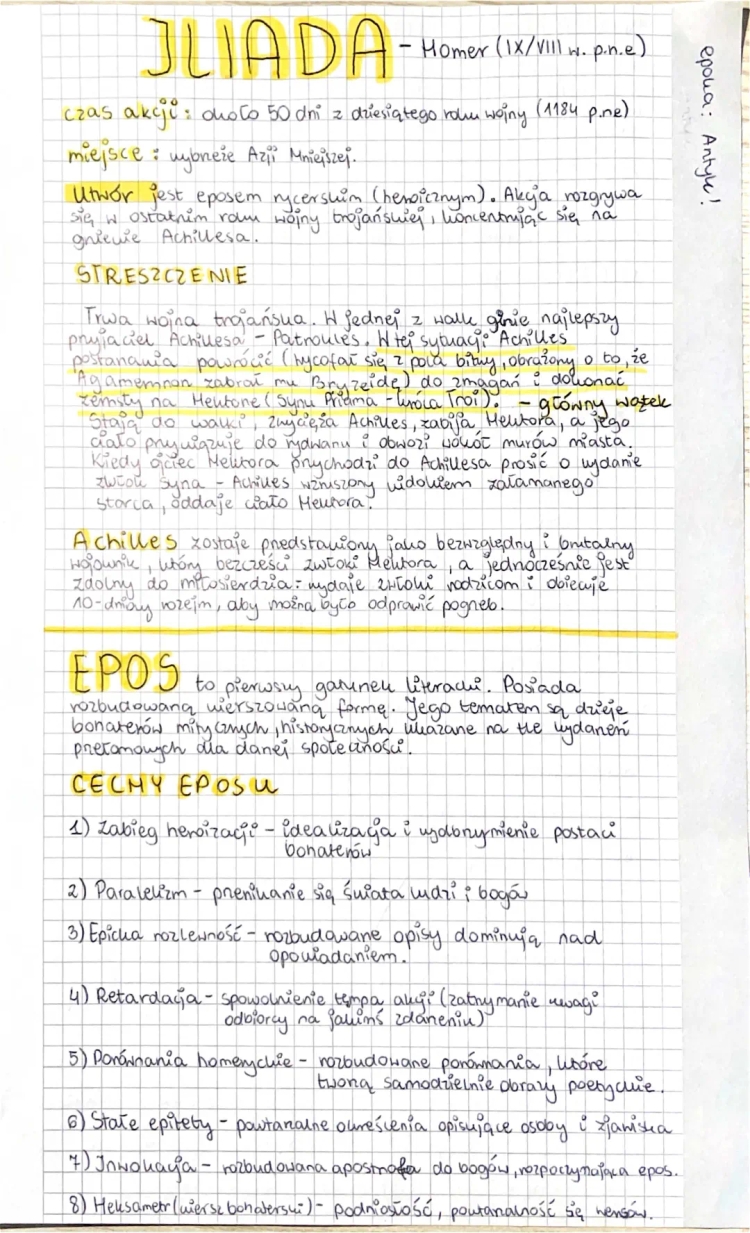 ILIADA - Homer (IX/VIII w. p.n.e)
epoka: Antyk!
czas akcji: około 50 dni z dziesiątego roku wojny (1184 p.ne)
miejsce: wybrzeże Azji Mniejszej.
Utwór jest eposem rycerskim (heroicznym). Akcja rozgrywa
się w ostatnim roku wojny trojańskiej, koncentrując się na
gniewie Achillesa.
STRESZCZENIE
Trwa wojna trojańska. W jednej z walk ginie najlepszy
przyjaciel Achillesa - Patroules. W tej sytuacji Achilles
postanawia powrócić (wycofał się z pola bitwy, obrażony o to, że
Agamemnon zabrał mu Bryzeidę) do zmagań i dokonać
zemsty na Hektorze (Synu Priama - króla Troi). - główny wątek
Stają do walki, zwycięża Achilles, zabija Hektora, a jego
ciało przywiązuje do rydwanu i obwozi wokół murów miasta.
Kiedy ojciec Hektora przychodzi do Achillesa prosić o wydanie
zwłok syna - Achilles wzruszony widokiem załamanego
starca, oddaje ciało Hektora.
Achilles zostaje przedstawiony jako bezwzględny i brutalny
wojownik, który bezcześci zwłoki Hektora, a jednocześnie jest
zdolny do miłosierdzia: wydaje zwłoki rodzicom i obiecuje
10-dniowy rozejm, aby można było odprawić pogrzeb.
EPOS to pierwszy gatunek literacki. Posiada
rozbudowaną wierszowaną formę. Jego tematem są dzieje
bohaterów mitycznych, historycznych ukazane na tle wydarzeń
przełomowych dla danej społeczności.
CECHY EPOSU
1) Zabieg heroizacji - idealizacja i wyolbrzymienie postaci
bohaterów
2) Paralelizm - przenikanie się świata ludzi i bogów
3) Epicka rozlewność - rozbudowane opisy dominują nad
opowiadaniem.
4) Retardacja - spowolnienie tempa akcji (zatrzymanie uwagi
odbiorcy na jakimś zdarzeniu)
5) Porównania homeryckie - rozbudowane porównania, które
tworzą samodzielnie obrazy poetyckie.
6) Stałe epitety - powtarzalne określenia opisujące osoby i zjawiska
7) Inwokacja - rozbudowana apostrofa do bogów, rozpoczynająca epos.
8) Heksametr (wiersz bohaterski) - podniosłość, powtarzalność się wersów.